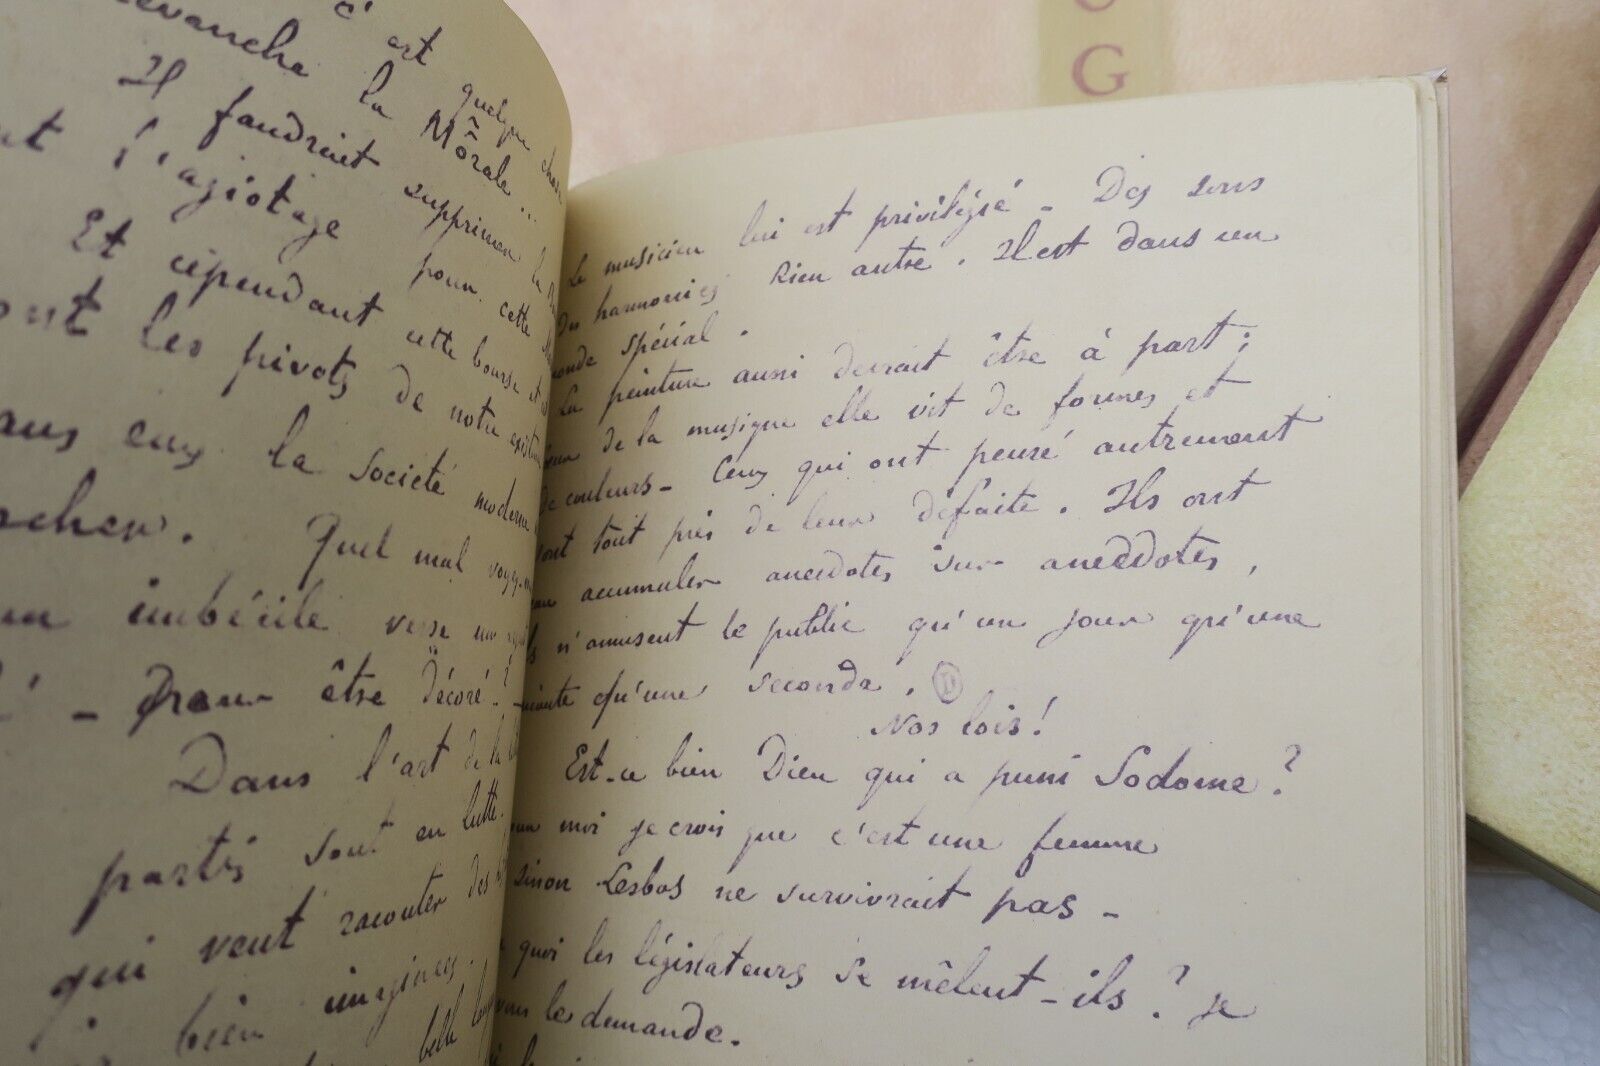 c'est quelque chose
la Morale...
Il faudrait supprimer la
l'agiotage pour cette
Et cependant cette bourse et
les pivots de notre
eux la société moderne
Quel mal voyez
imbécile verse un
- Pour être décoré?
Dans l'art de la
partis sont en lutte.
qui veut raconter des
bien imaginées.
belle
Le musicien lui est privilégié - Des sons
Des harmonies Rien autre. Il est dans un
monde spécial.
La peinture aussi devrait être à part;
de la musique elle vit de formes et
de couleurs - Ceux qui ont pensé autrement
sont tout près de leur défaite. Ils ont
accumuler anecdotes sur anecdotes,
n'amusent le public qu'un jour qu'une
qu'une seconde.
Nos lois!
Est-ce bien Dieu qui a puni Sodome?
moi je crois que c'est une femme
sinon Lesbos ne survivrait pas -
quoi les législateurs se mêlent-ils? Je
vous le demande.
G